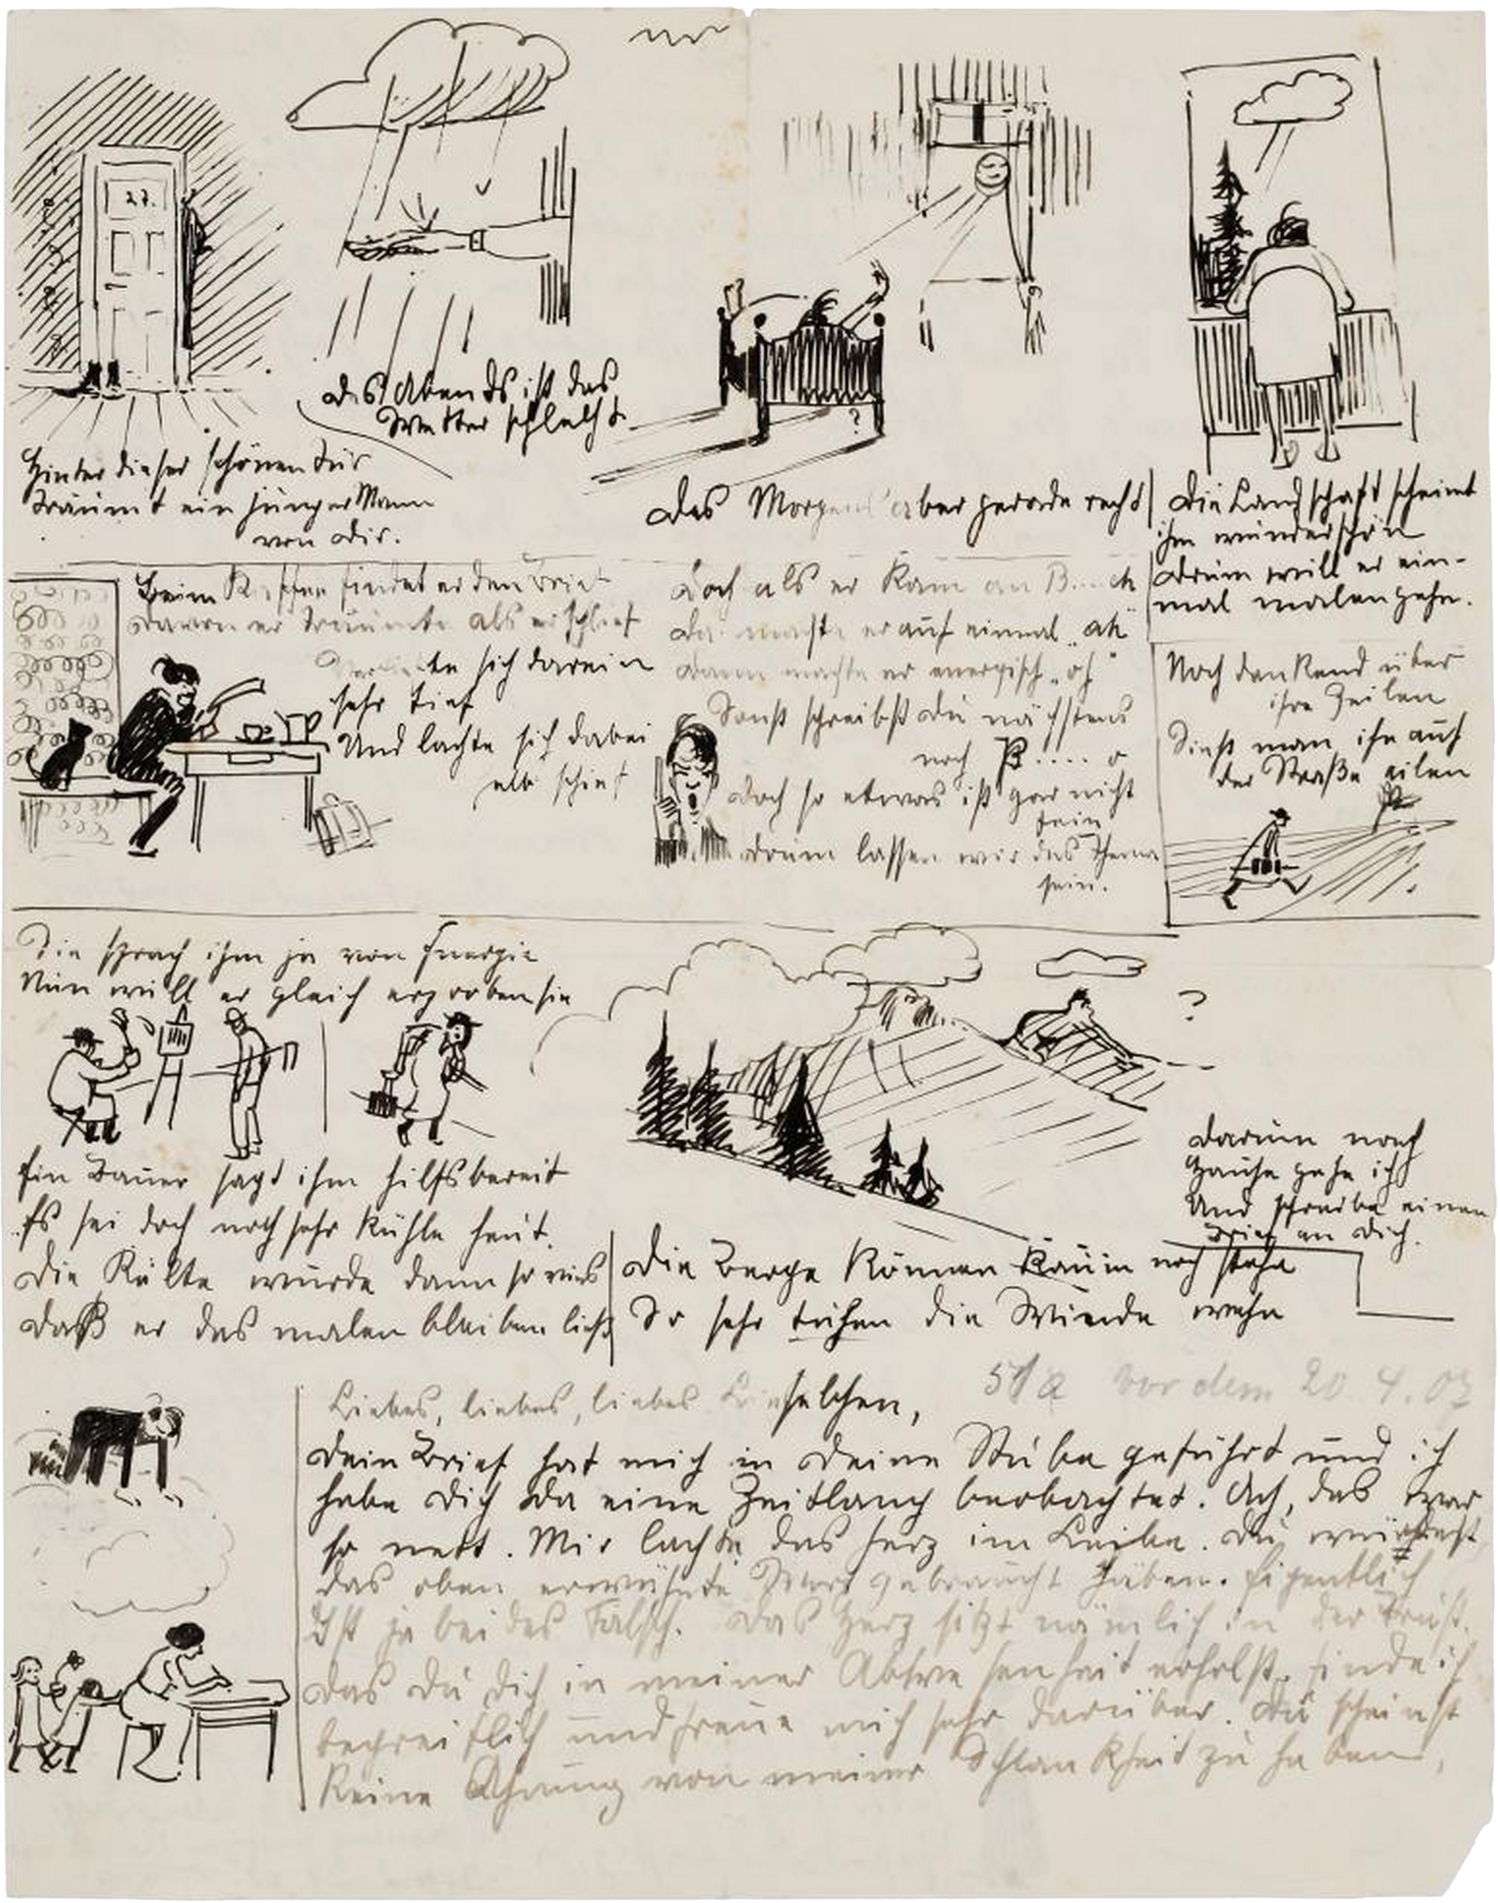 27.
Hinter dieser schönen Tür
träumt ein junger Mann
von Dir.
Des Abends ist das
Wetter schlecht
?
Des Morgens aber gerade recht
Die Landschaft scheint
ihm wunderschön
Drum will er ein-
mal malen gehn.
Beim Kaffee findet er den Brief
Davon er träumte als er schlief
sich darein
sehr tief
Und lachte sich dabei
schief
Doch als er kam an B...ch
Da machte er auf einmal „ah"
Dann machte er energisch „oh"
Sonst schreibst Du nächstens
noch P.... o
Doch so etwas ist gar nicht
fein
Drum lassen wir das Thema
sein.
Noch den Kand über
ihre Zeilen
Sieht man ihn auf
der Straße eilen
Sie sprach ihm ja von Energie
Nun will er gleich erproben sie
Ein Bauer sagt ihm hilfsbereit
Es sei doch noch sehr kühle heut.
Die Kälte wurde dann so
Daß er das malen bleiben ließ
?
Die Berge können kaum noch stehn
So sehr tuhen die Winde wehn
Darum nach
Hause gehe ich
Und schreibe einen
Brief an Dich.
51a vor dem 20.4.03
Liebes, liebes, liebes Linselchen,
Dein Brief hat mich in Deine Stube geführt und ich
habe Dich da eine Zeitlang beobachtet. Ach, das war
so nett. Mir lachte das Herz im Leibe. Du würdest
das oben erwähnte Wort gebraucht haben. Eigentlich
ist ja beides falsch. Das Herz sitzt nämlich in der Brust.
Das Du Dich in meiner Abwesenheit erholst, finde ich
begreiflich und freue mich sehr darüber. Du scheinst
keine Ahnung von meiner Schlankheit zu haben,